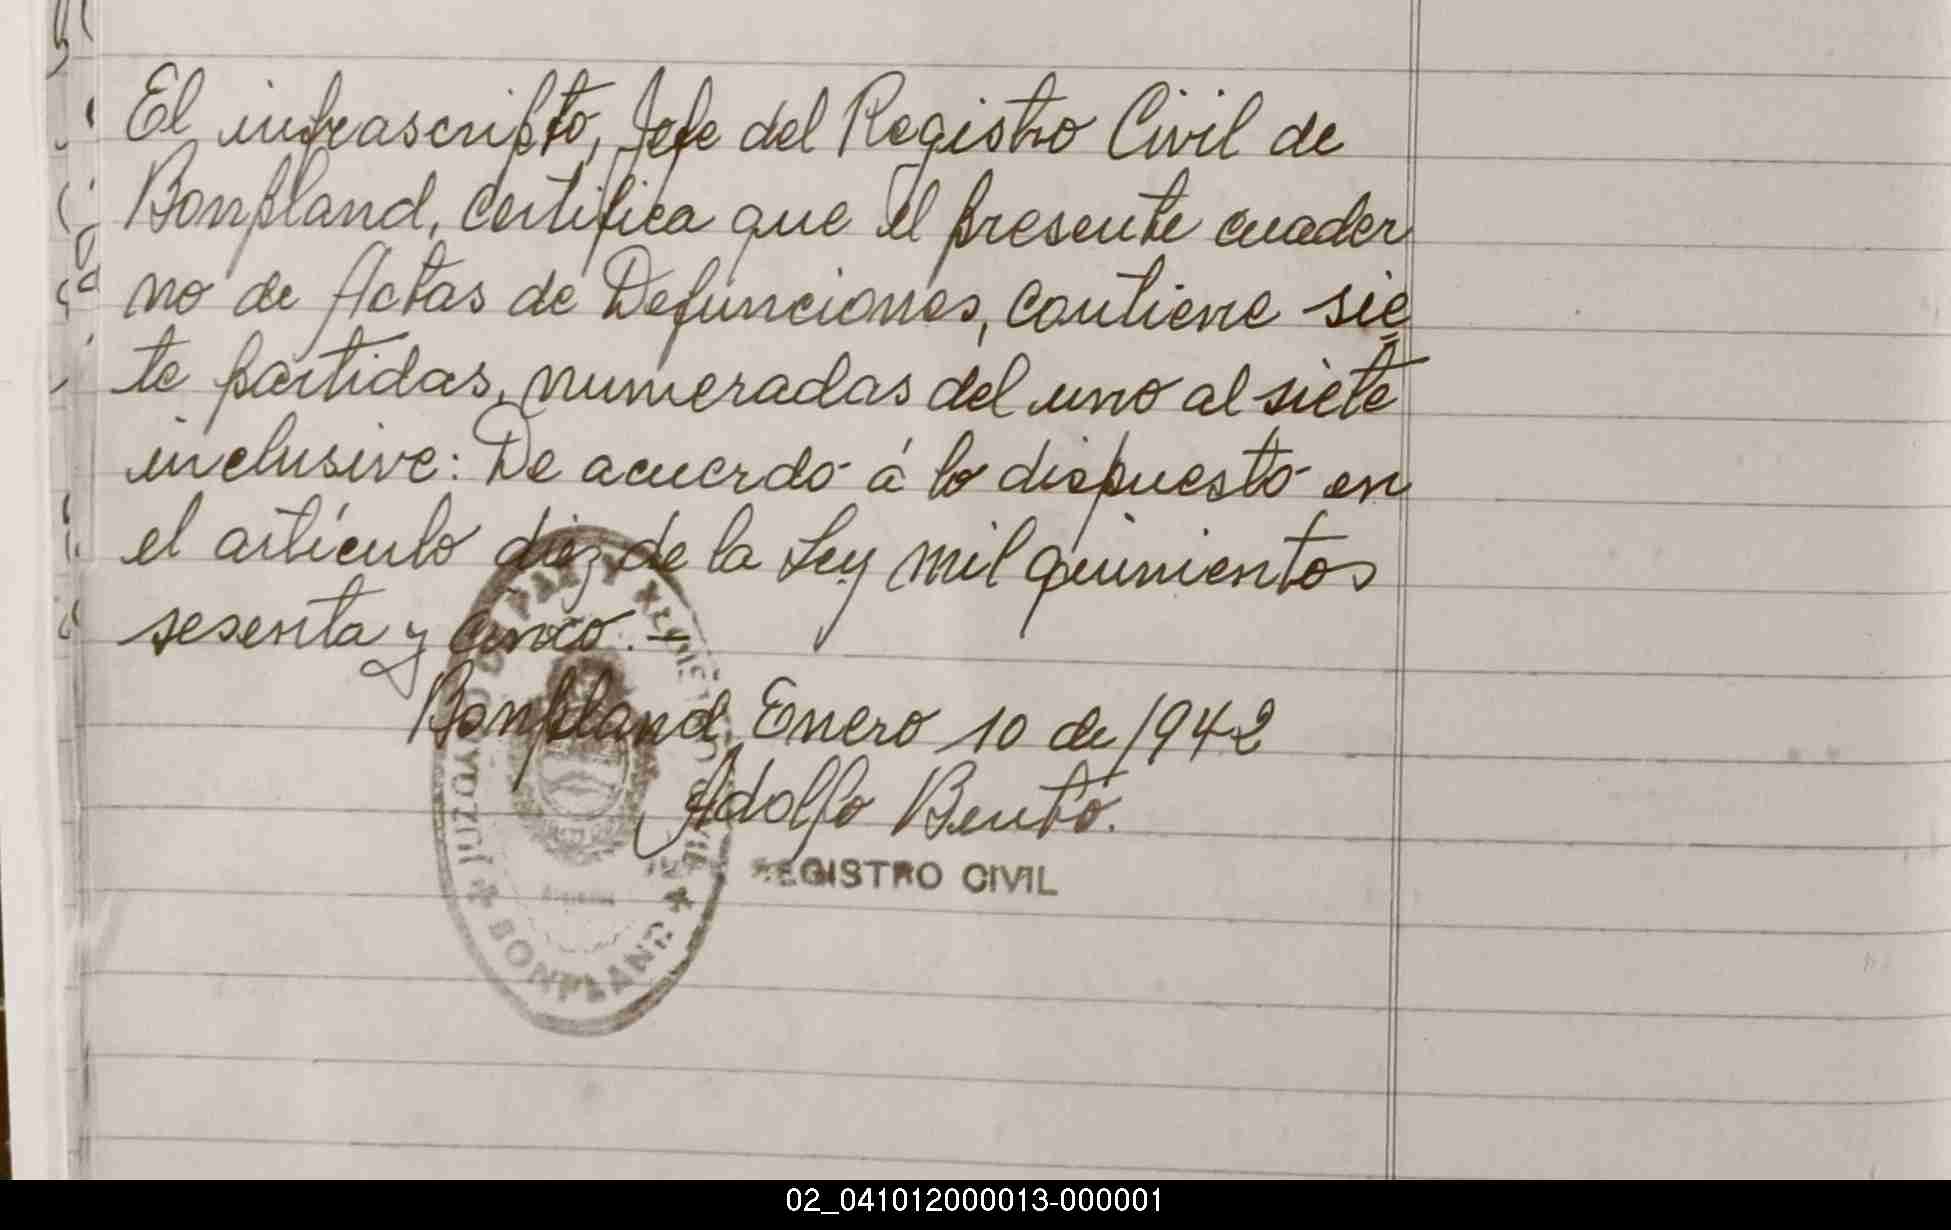 El infrascripto, Jefe del Registro Civil de
Bonpland, certifica que el presente cuader
no de Actas de Defunciones, contiene sie
te partidas, numeradas del uno al siete
inclusive: De acuerdo á lo dispuesto en
el artículo diez de la Ley mil quinientos
sesenta y cinco.-
Bonpland, Enero 10 de 1942
Adolfo Bentó.
REGISTRO CIVIL
BONPLAND
02_041012000013-000001